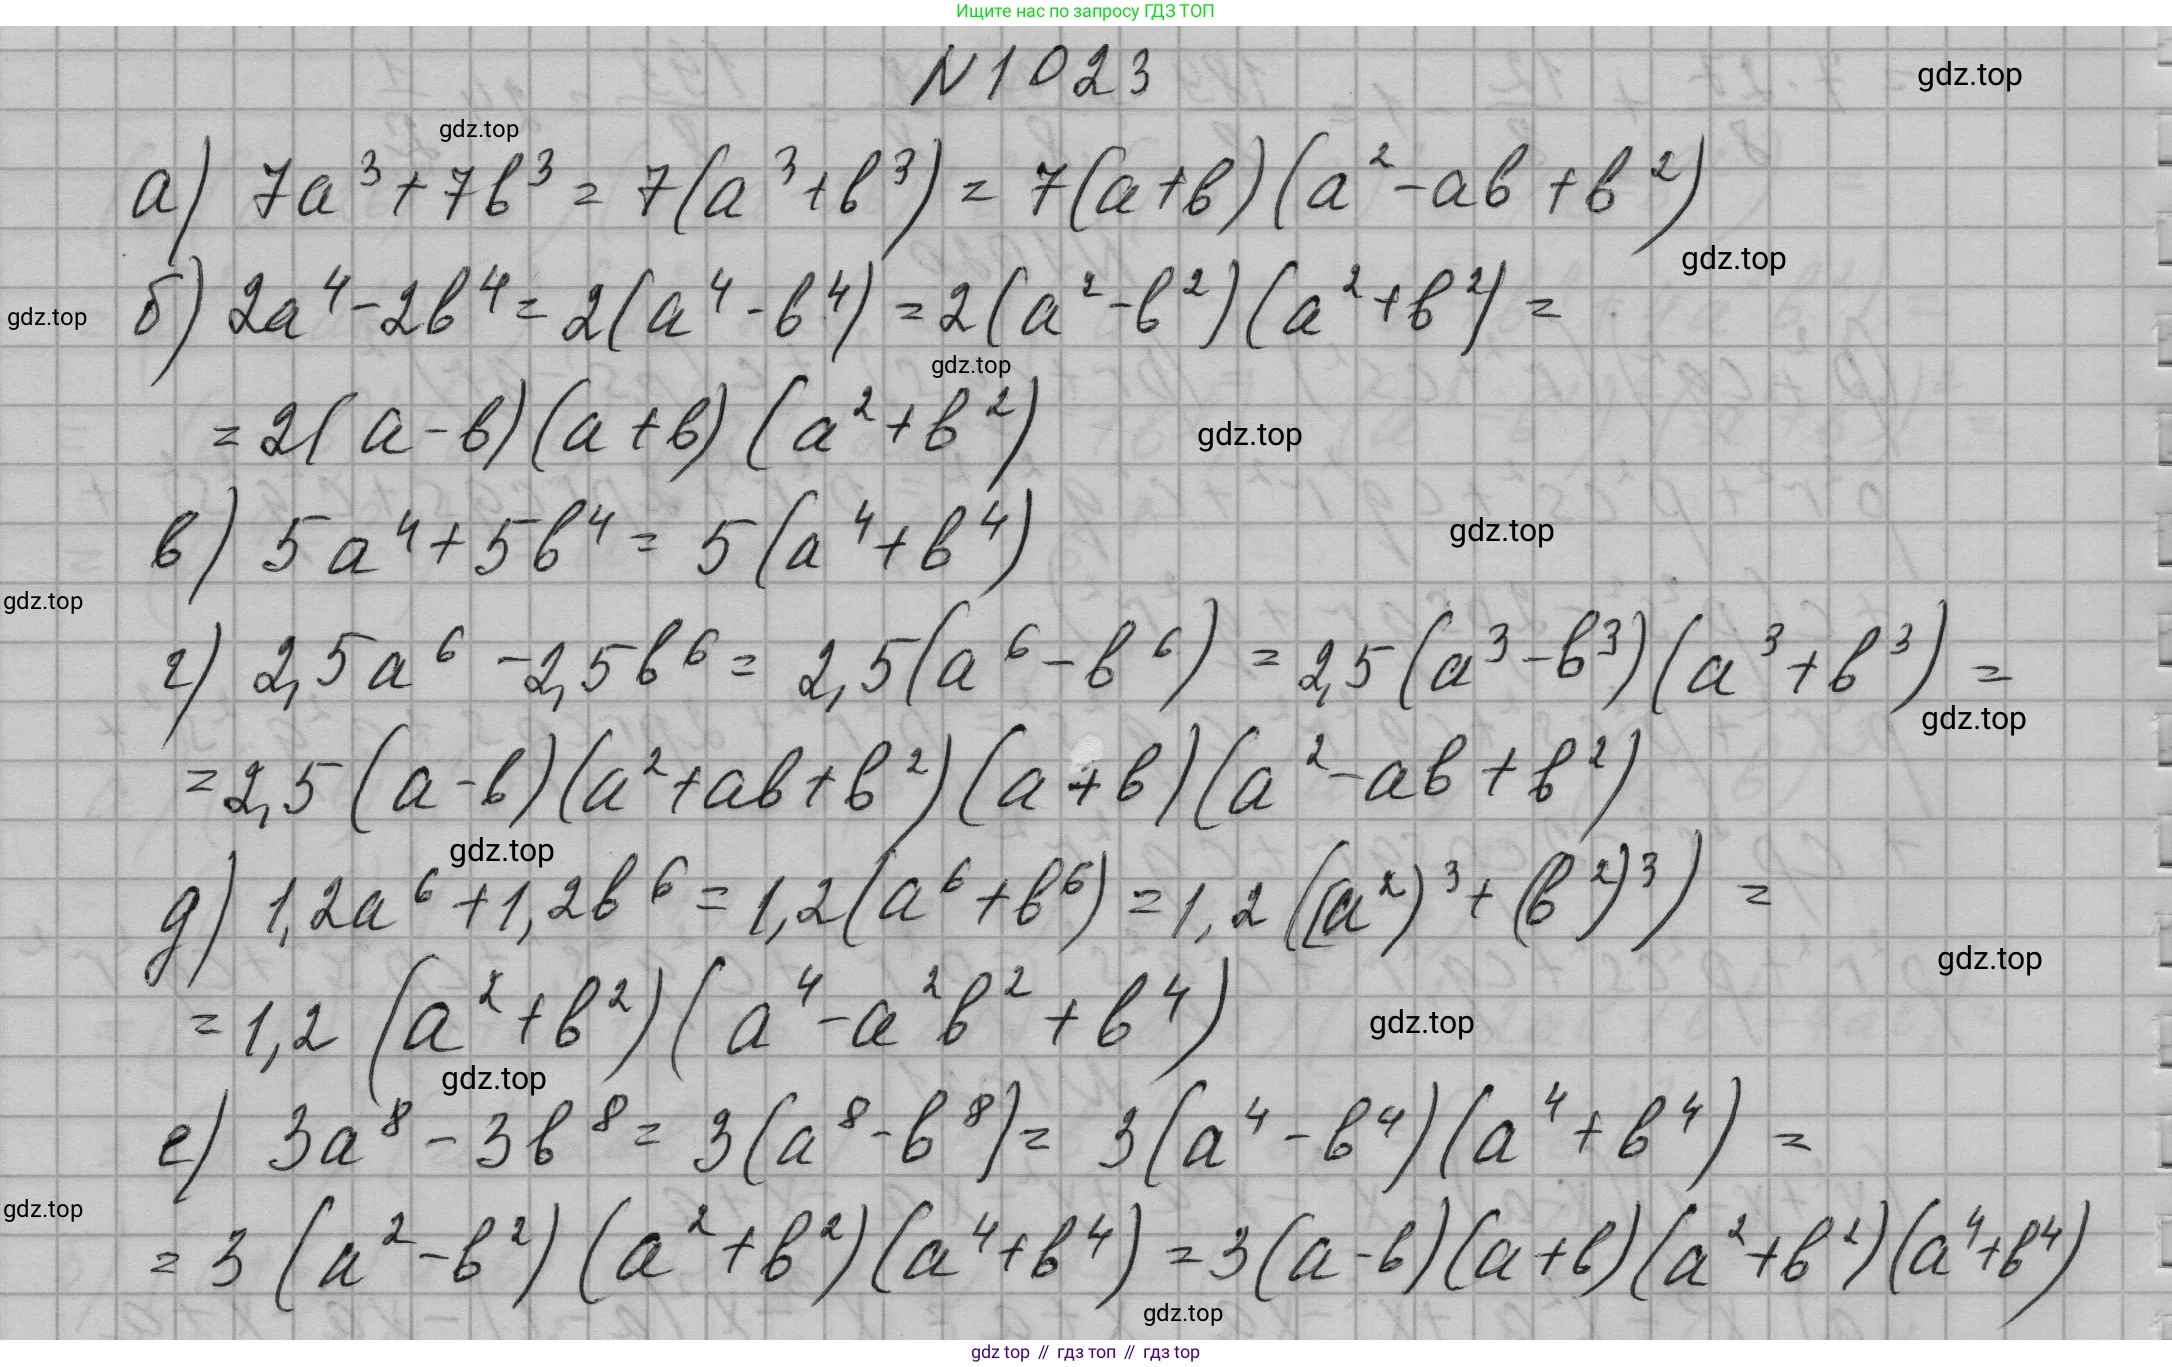 Ищите нас по запросу ГДЗ ТОП
N 1023
gdz.top
gdz.top
а) 7a³ + 7b³ = 7(a³ + b³) = 7(a + b)(a² - ab + b²)
gdz.top
gdz.top
б) 2a⁴ - 2b⁴ = 2(a⁴ - b⁴) = 2(a² - b²)(a² + b²) =
gdz.top
= 2(a - b)(a + b)(a² + b²)
gdz.top
в) 5a⁴ + 5b⁴ = 5(a⁴ + b⁴)
gdz.top
gdz.top
г) 2,5a⁶ - 2,5b⁶ = 2,5(a⁶ - b⁶) = 2,5(a³ - b³)(a³ + b³) =
gdz.top
= 2,5(a - b)(a² + ab + b²)(a + b)(a² - ab + b²)
gdz.top
д) 1,2a⁶ + 1,2b⁶ = 1,2(a⁶ + b⁶) = 1,2((a²)³ + (b²)³) =
gdz.top
= 1,2(a² + b²)(a⁴ - a²b² + b⁴)
gdz.top
gdz.top
е) 3a⁸ - 3b⁸ = 3(a⁸ - b⁸) = 3(a⁴ - b⁴)(a⁴ + b⁴) =
gdz.top
= 3(a² - b²)(a² + b²)(a⁴ + b⁴) = 3(a - b)(a + b)(a² + b²)(a⁴ + b⁴)
gdz.top
gdz top // гдз топ // гдз top